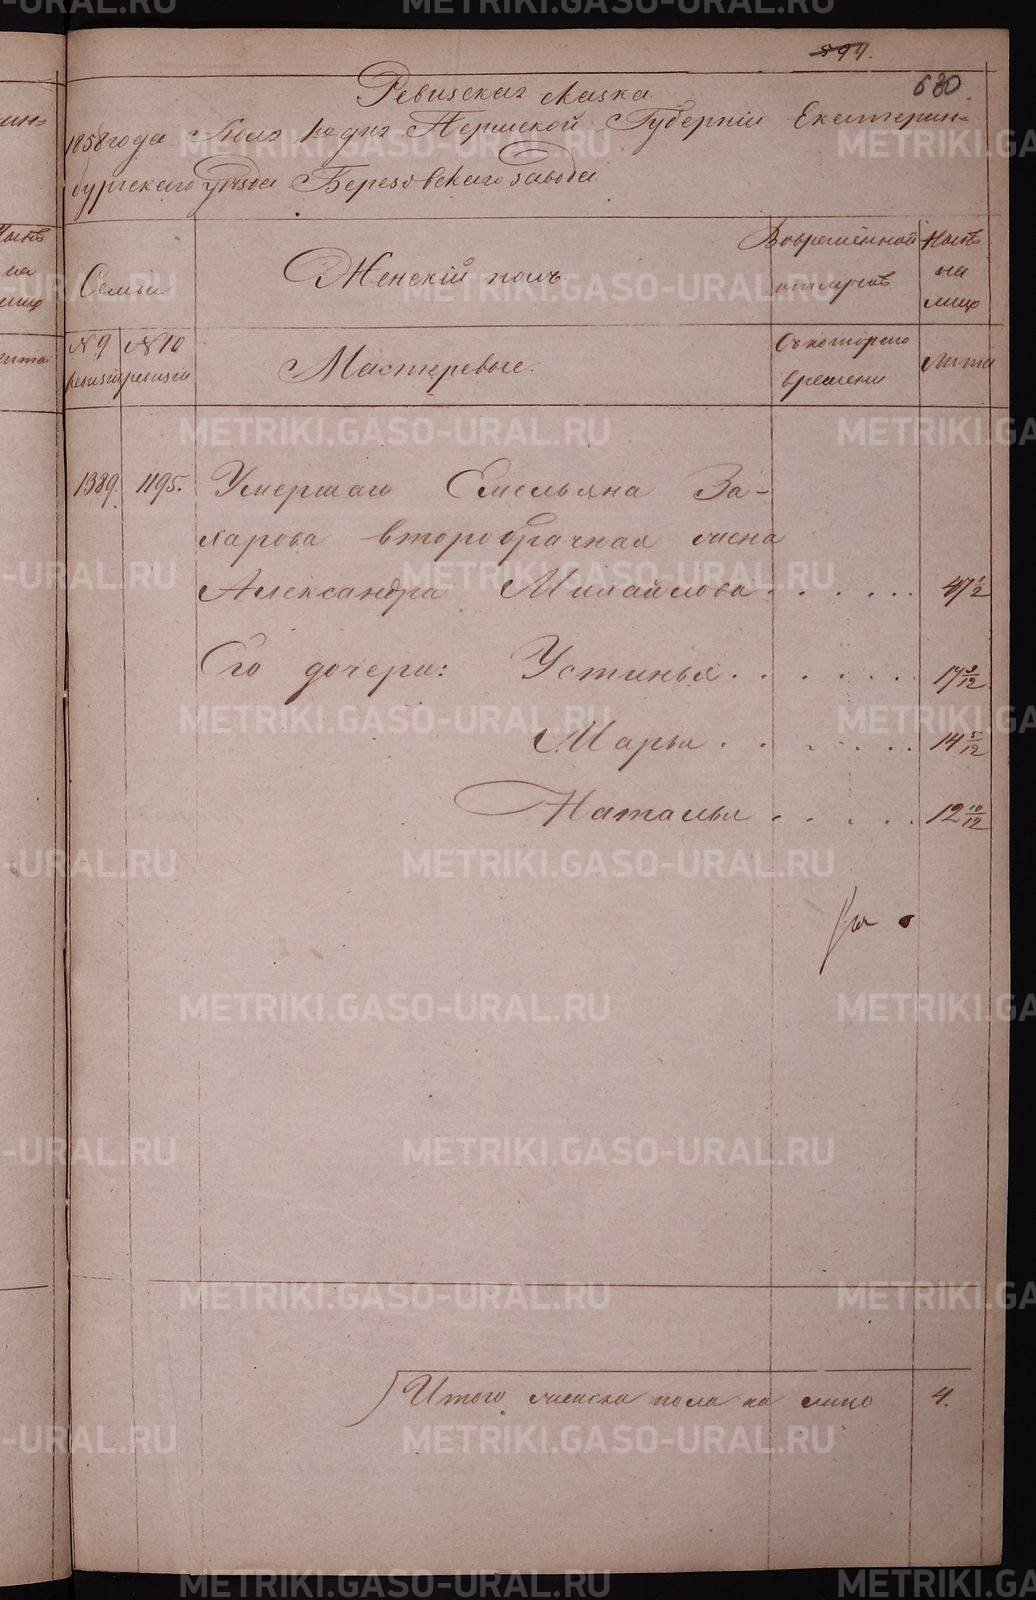 599.
630.
Ревизская сказка
1858 года Июня 1го дня Пермской Губерніи Екатерин-
бургскаго уѣзда Березовскаго завода
Семьи
Женскій полъ.
Во временной отлучкѣ
Нынѣ на лицо
№ 9 ревизіи
№ 10 ревизіи
Мастеровые.
Съ котораго времени
Лѣта
1389. 1195. Умершаго Емельяна За-
харова второбрачная жена
Александра Михайлова . . . . . . 47 1/2
Его дочери: Устинья . . . . . .
Марья . . . . . . 14 5/12
Наталья . . . . . 12 10/12
Итого женска пола на лицо 4.
METRIKI.GASO-URAL.RU